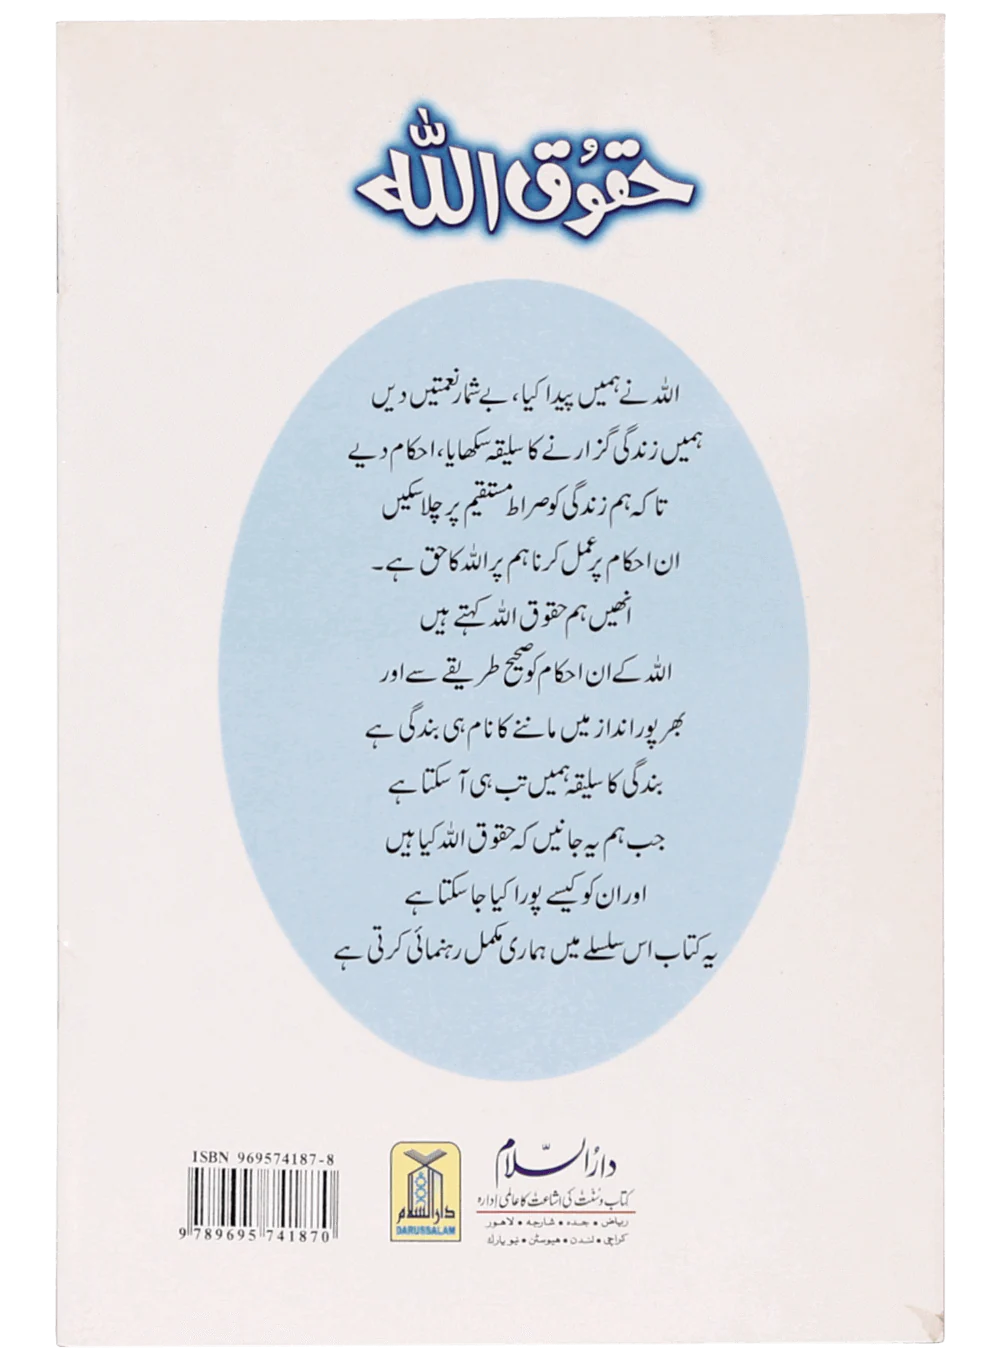 حقوق اللہ
اللہ نے ہمیں پیدا کیا، بے شمار نعمتیں دیں
ہمیں زندگی گزارنے کا سلیقہ سکھایا، احکام دیے
تا کہ ہم زندگی کو صراط مستقیم پر چلا سکیں
ان احکام پر عمل کرنا ہم پر اللہ کا حق ہے۔
انھیں ہم حقوق اللہ کہتے ہیں
اللہ کے ان احکام کو صحیح طریقے سے اور
بھرپور انداز میں ماننے کا نام ہی بندگی ہے
بندگی کا سلیقہ ہمیں تب ہی آ سکتا ہے
جب ہم یہ جانیں کہ حقوق اللہ کیا ہیں
اور ان کو کیسے پورا کیا جا سکتا ہے
یہ کتاب اس سلسلے میں ہماری مکمل رہنمائی کرتی ہے
دارُالسّلام
کتاب و سُنّت کی اشاعت کا عالمی ادارہ
ریاض • جدہ • شارجہ • لاھور
کراچی • لندن • ھیوسٹن • نیو یارک
دارالسلام
DARUSSALAM
ISBN 969574187-8
9 789695 741870